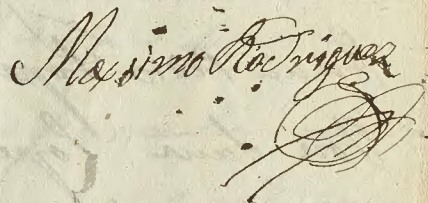 Maximo Rodriguez